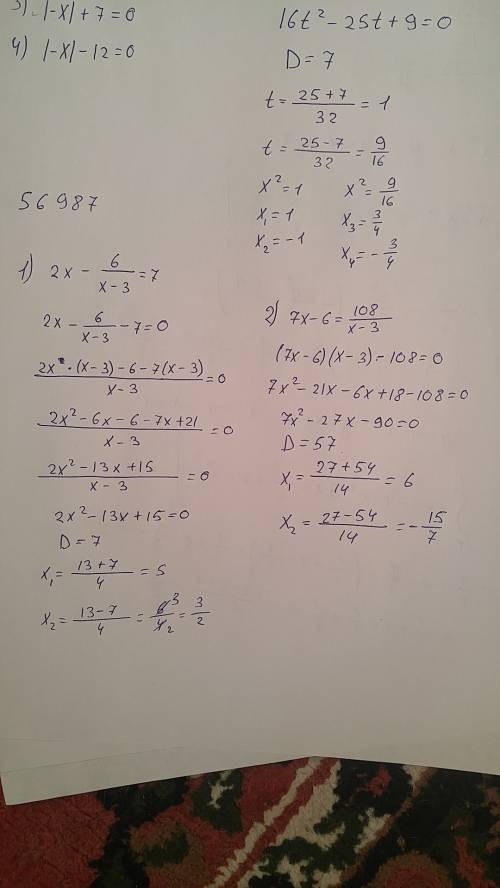 3) |-x| + 7 = 0
4) |-x| - 12 = 0
16t² - 25t + 9 = 0
D = 7
t = (25 + 7)/32 = 1
t = (25 - 7)/32 = 9/16
x² = 1
x₁ = 1
x₂ = -1
x² = 9/16
x₃ = 3/4
x₄ = -3/4
56987
1) 2x - 6/(x-3) = 7
2x - 6/(x-3) - 7 = 0
(2x·(x-3) - 6 - 7(x-3))/(x-3) = 0
(2x² - 6x - 6 - 7x + 21)/(x-3) = 0
(2x² - 13x + 15)/(x-3) = 0
2x² - 13x + 15 = 0
D = 7
x₁ = (13 + 7)/4 = 5
x₂ = (13 - 7)/4 = 6³/4₂ = 3/2
2) 7x - 6 = 108/(x-3)
(7x-6)(x-3) - 108 = 0
7x² - 21x - 6x + 18 - 108 = 0
7x² - 27x - 90 = 0
D = 57
x₁ = (27 + 54)/14 = 6
x₂ = (27 - 54)/14 = -15/7